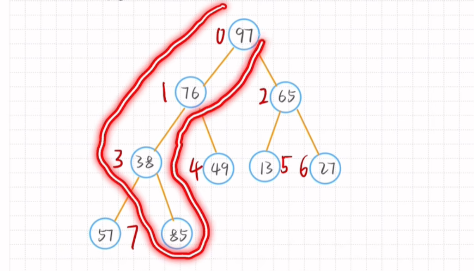 0 97
1 76 2 65
3 38 4 49 13 5 6 27
57 7 85